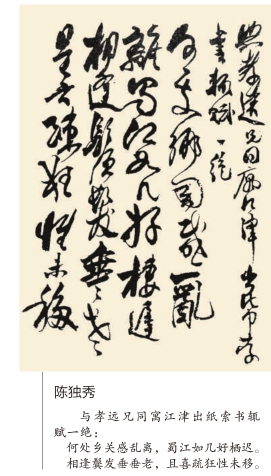 與孝遠兄同寓江津出紙索
書輒賦一絕
何處鄉関感亂
離蜀江如几好棲遲
相逢鬢髮垂垂老
且喜疎狂性未移
陈独秀
与孝远兄同寓江津出纸索书辄
赋一绝：
何处乡关感乱离，蜀江如几好栖迟。
相逢鬓发垂垂老，且喜疏狂性未移。